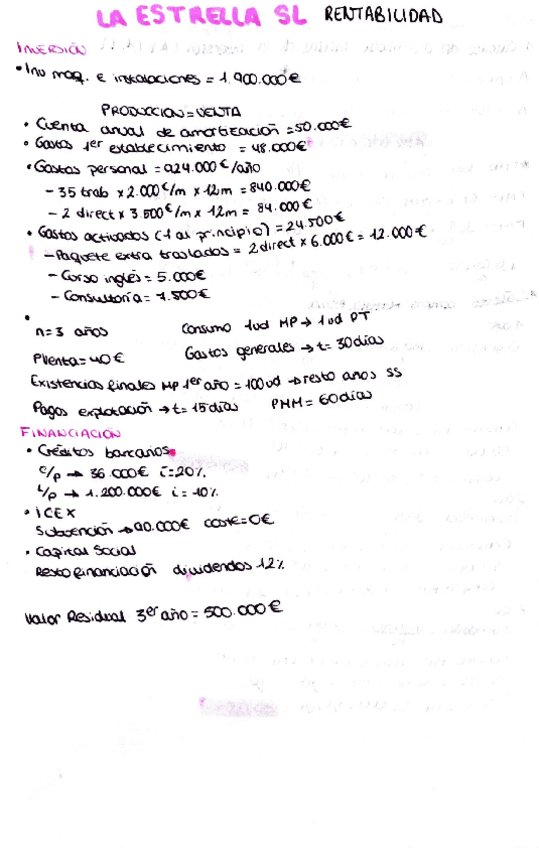 LA ESTRELLA SL RENTABILIDAD
INVERSIÓN
• Inv maq. e instalaciones = 1.900.000€
PRODUCCION = VENTA
• Cuenta anual de amortización = 50.000€
• Gastos 1er establecimiento = 48.000€
• Gastos personal = 924.000€/año
- 35 trab x 2.000€/m x 12m = 840.000€
- 2 direct x 3.500€/m x 12m = 84.000€
• Gastos activados (1 al principio) = 24.500€
- Paquete extra traslados = 2 direct x 6.000€ = 12.000€
- Curso inglés = 5.000€
- Consultoría = 7.500€
•
n=3 años Consumo 1ud MP → 1ud PT
PVenta = 40€ Gastos generales → t= 30 días
Existencias finales MP 1er año = 100ud → resto años SS
Pagos explotación → t= 15 días PMM = 60 días
FINANCIACIÓN
• Créditos bancarios
c/p → 36.000€ i=20%
L/p → 1.200.000€ i= 10%
• ICEX
Subvención → 90.000€ coste=0€
• Capital Social
Resto financiación dividendos 12%
Valor Residual 3er año = 500.000€